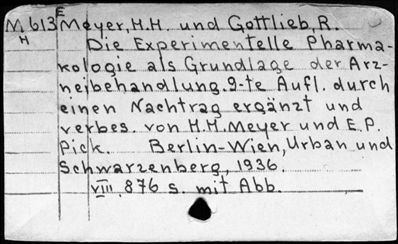 E
M 613 Meyer, H.H. und Gottlieb, R.
H Die Experimentelle Pharma-
kologie als Grundlage der Arz-
neibehandlung. 9-te Aufl. durch
einen Nachtrag ergänzt und
verbes. von H.H. Meyer und E.P.
Pick. Berlin-Wien, Urban und
Schwarzenberg, 1936.
VIII, 876 s. mit Abb.